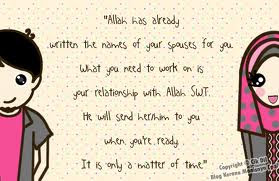 "Allah has already
written the names of your spouses for you.
What you need to work on is
your relationship with Allah SWT.
He will send her/him to you
when you're ready.
It is only a matter of time"
Copyright ©
Blog Karena